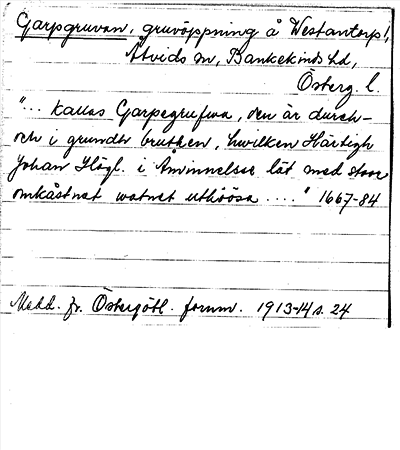 Garpgruvan, gruvöppning å Westantorp,
Åtvids sn, Bankekinds hd,
Österg. l.
"... kallas Garpegrufwa, den är durch-
och i grundh brutken, hwilken Härtigh
Johan Högl. i Åminnelsse låt med stoor
omkåstnat watnet uthöösa ...." 1667-84
Medd. fr. Östergötl. fornm. 1913-14 s. 24